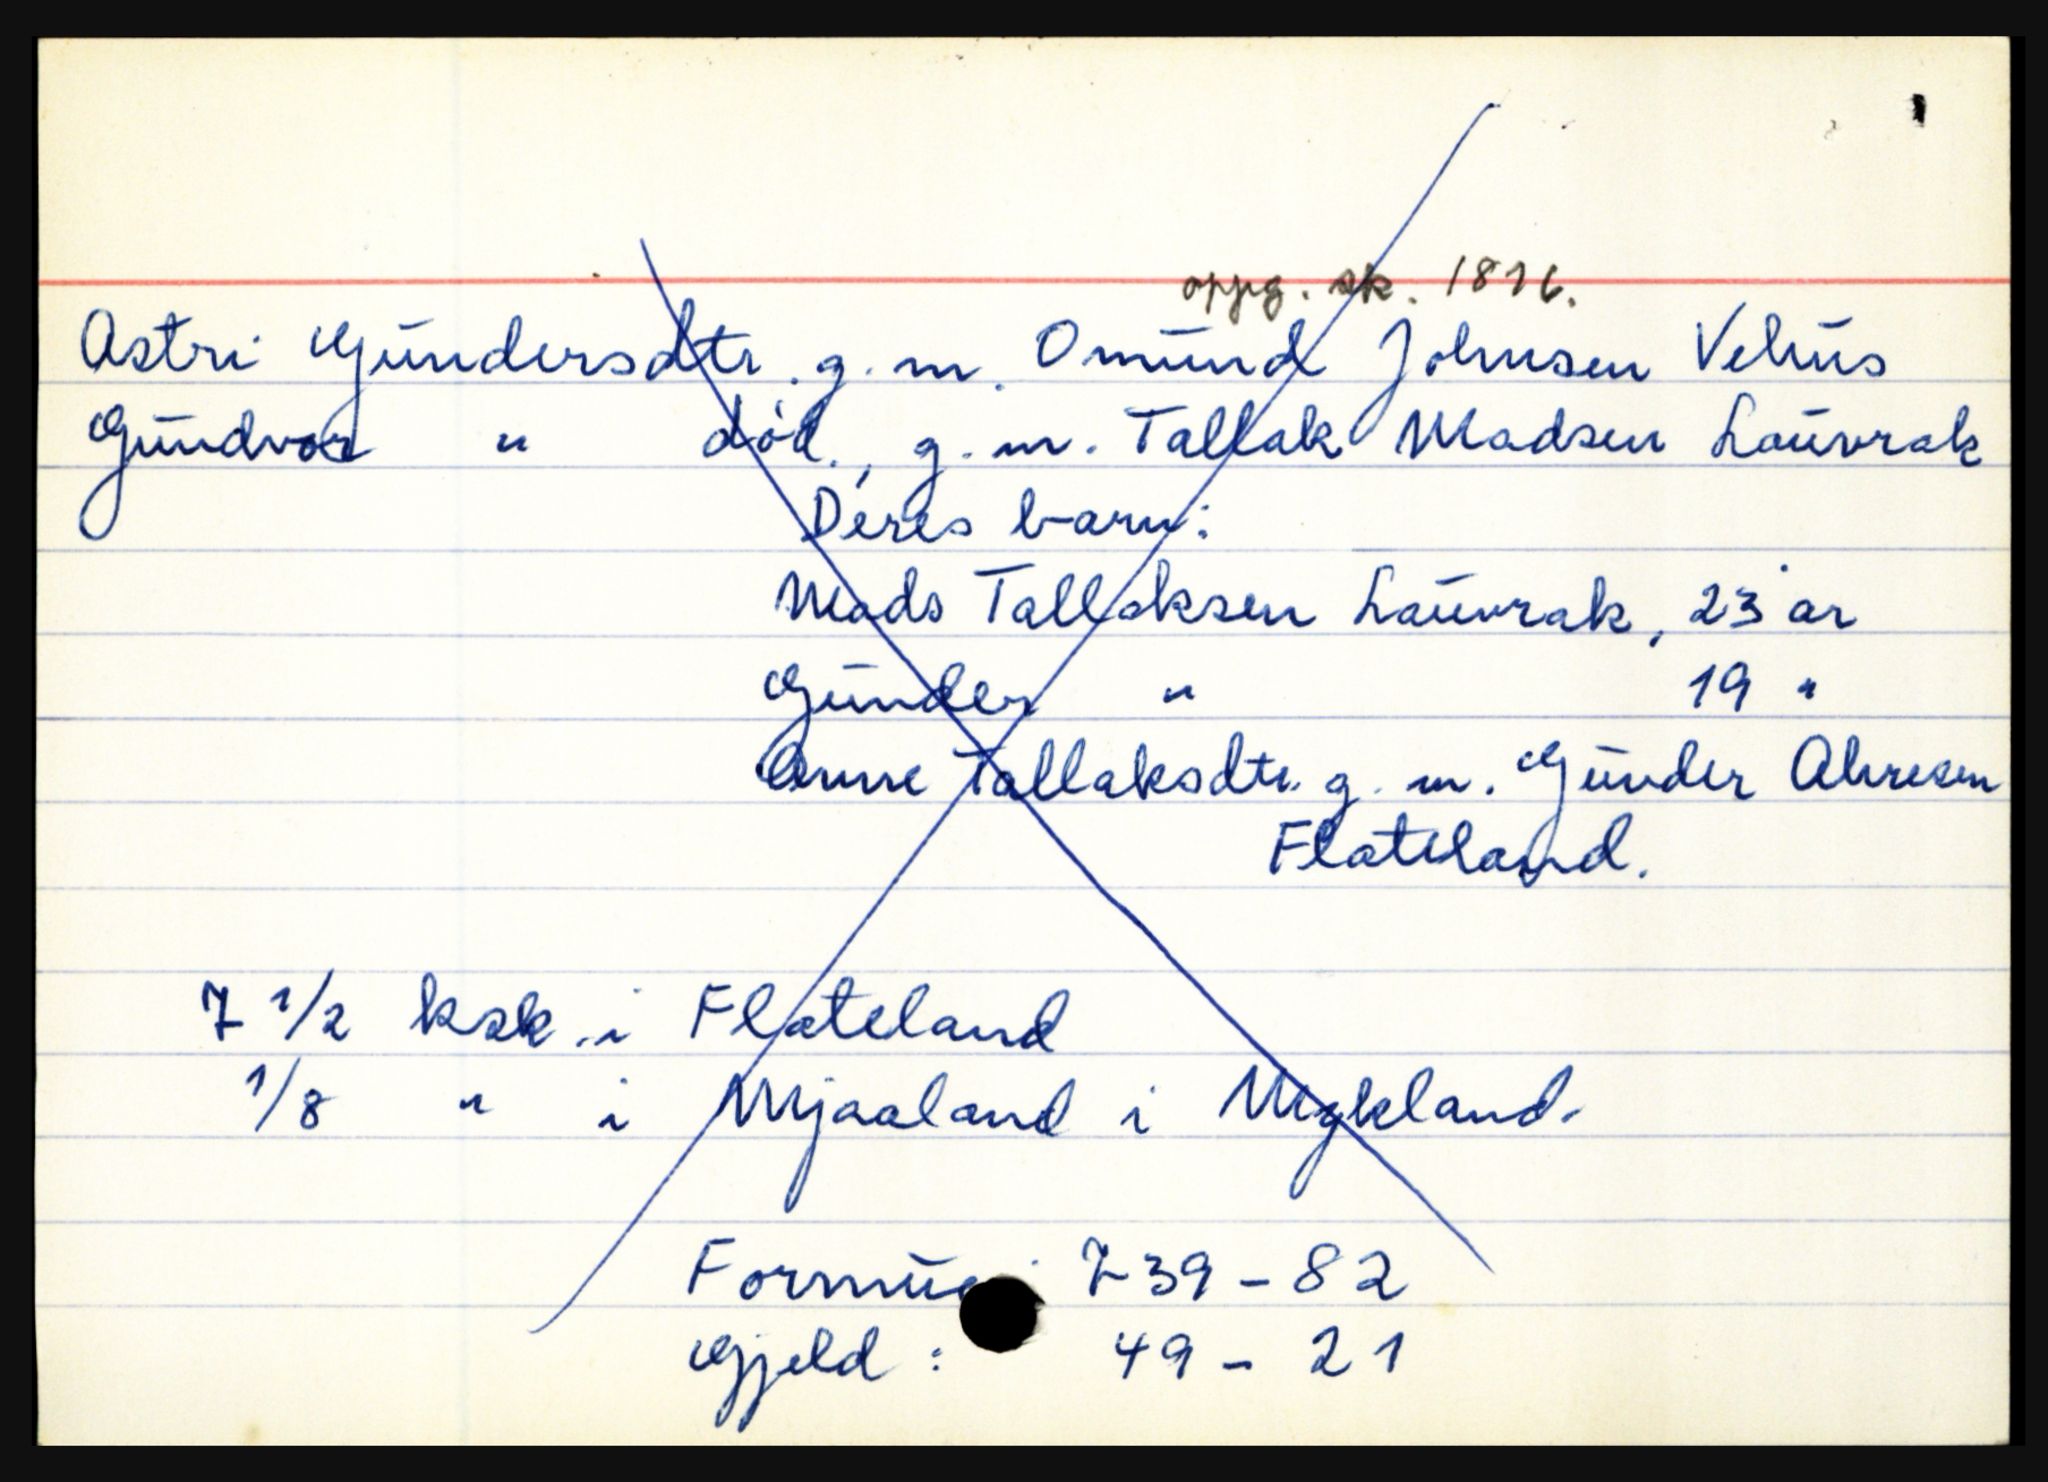 oppg. sk. 1816.
Astri Gundersdtr. g. m. Omund Johnsen Vehus
Gundvor " død., g. m. Tallak Madsen Lauvrak
Deres barn:
Mads Tallaksen Lauvrak, 23 år
Gunder " 19 "
Anne Tallaksdtr. g. m. Gunder Alvresen
Flateland.
7 1/2 ksk. i Flateland
1/8 " i Mjaaland i Mykland.
Formue: 739 - 82
Gjeld: 49 - 21